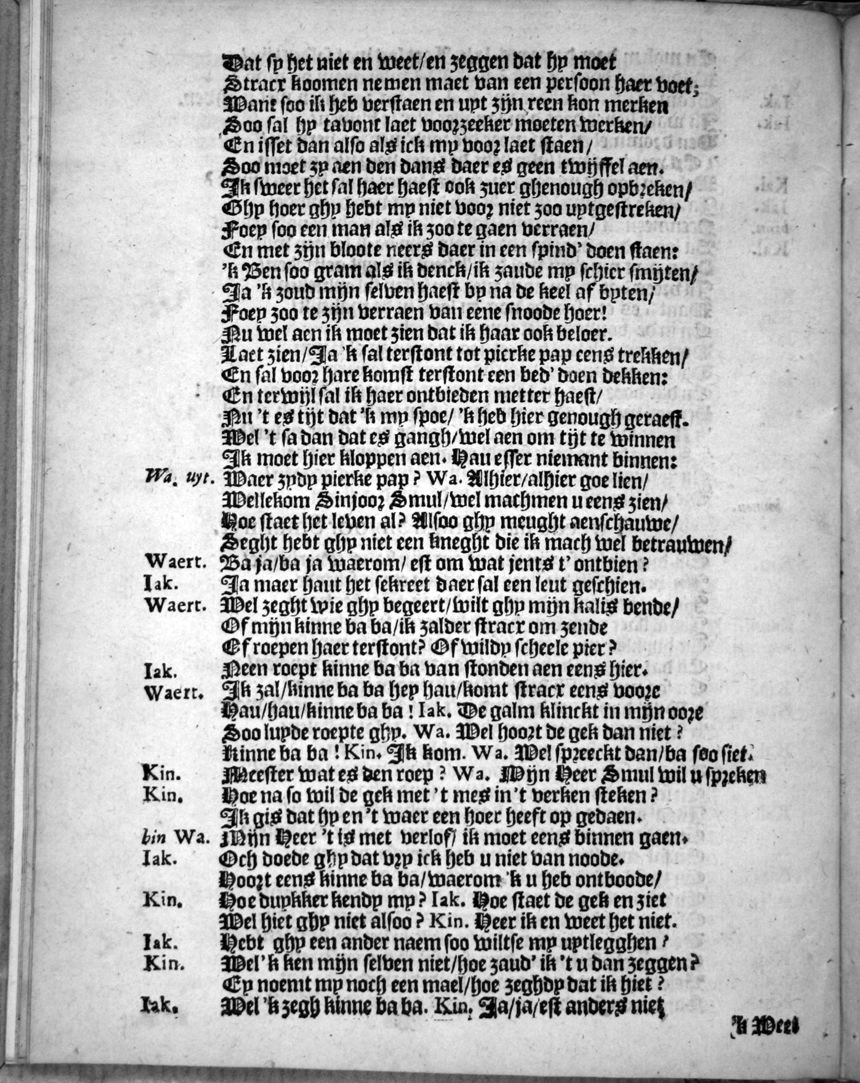 Dat sy het niet en weet/en zeggen dat hy moet
Stracx koomen nemen maet van een persoon haer voet;
Want soo ik heb verstaen en uyt zijn reen kon merken
Soo sal hy tavont laet voorzeeker moeten werken/
En isset dan also als ick my voor laet staen/
Soo moet zy aen den dans daer es geen twijffel aen.
Ik sweer het sal haer haest ook zuer ghenough opbreken/
Ghy hoer ghy hebt my niet voor niet zoo uytgestreken/
Foey soo een man als ik zoo te gaen verraen/
En met zijn bloote neers daer in een spind' doen staen:
'k Ben soo gram als ik denck/ik zaude my schier smijten/
Ja 'k zoud mijn selven haest by na de keel af byten/
Foey zoo te zijn verraen van eene snoode hoer!
Nu wel aen ik moet zien dat ik haar ook beloer.
Laet zien/Ja 'k sal terstont tot pierke pap eens trekken/
En sal voor hare komst terstont een bed' doen dekken:
En terwijl sal ik haer ontbieden metter haest/
Nu 't es tijt dat 'k my spoe/ 'k heb hier genough geraest.
Wel 't sa dan dat es gangh/wel aen om tijt te winnen
Ik moet hier kloppen aen. Hau esser niemant binnen:
Wa. uyt. Waer zydy pierke pap? Wa. Alhier/alhier goe lien/
Wellekom Sinjoor Smul/wel machmen u eens zien/
Hoe staet het leven al? Alsoo ghy meught aenschauwe/
Seght hebt ghy niet een kneght die ik mach wel betrauwen/
Waert. Ba ja/ba ja waerom/ est om wat jents t' ontbien?
Iak. Ja maer haut het sekreet daer sal een leut geschien.
Waert. Wel zeght wie ghy begeert/wilt ghy mijn kalis bende/
Of mijn kinne ba ba/ik zalder stracx om zende
Of roepen haer terstont? Of wildy scheele pier?
Iak. Neen roept kinne ba ba van stonden aen eens hier.
Waert. Ik zal/kinne ba ba hey hau/komt stracx eens voore
Hau/hau/kinne ba ba! Iak. De galm klinckt in mijn oore
Soo luyde roepte ghy. Wa. Wel hoort de gek dan niet?
Kinne ba ba! Kin. Ik kom. Wa. Wel spreeckt dan/ba soo siet.
Kin. Meester wat es den roep? Wa. Mijn Heer Smul wil u spreken
Kin. Hoe na so wil de gek met 't mes in't verken steken?
Ik gis dat hy en 't waer een hoer heeft op gedaen.
bin Wa. Mijn Heer 't is met verlof/ ik moet eens binnen gaen.
Iak. Och doede ghy dat vry ick heb u niet van noode.
Hoort eens kinne ba ba/waerom 'k u heb ontboode/
Kin. Hoe duykker kendy my? Iak. Hoe staet de gek en ziet
Wel hiet ghy niet alsoo? Kin. Heer ik en weet het niet.
Iak. Hebt ghy een ander naem soo wiltse my uytlegghen?
Kin. Wel 'k ken mijn selven niet/hoe zaud' ik 't u dan zeggen?
Ey noemt my noch een mael/hoe zeghdy dat ik hiet?
Iak. Wel 'k zegh kinne ba ba. Kin. Ja/ja/est anders niet
'k Weet